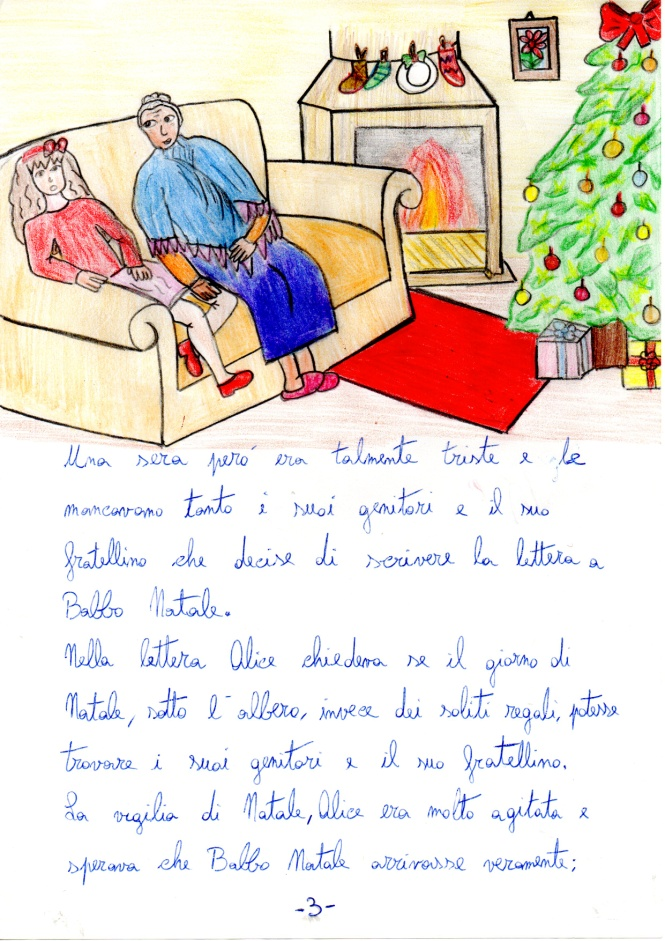 Una sera però era talmente triste e le
mancavano tanto i suoi genitori e il suo
fratellino che decise di scrivere la lettera a
Babbo Natale.
Nella lettera Alice chiedeva se il giorno di
Natale, sotto l'albero, invece dei soliti regali, potesse
trovare i suoi genitori e il suo fratellino.
La vigilia di Natale, Alice era molto agitata e
sperava che Babbo Natale arrivasse veramente;
-3-